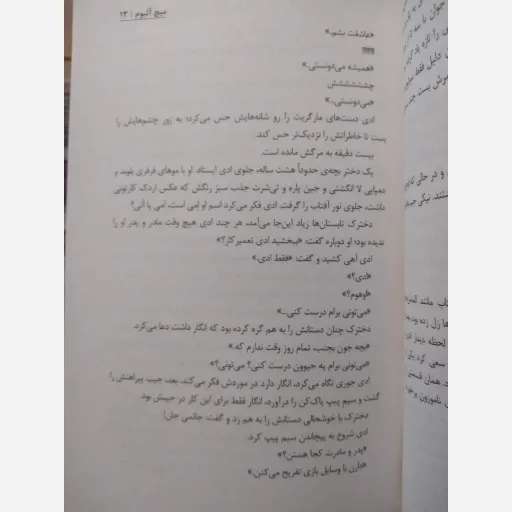 میچ آلبوم | ۱۳
«عاشقت بشم.»
!!!!!!!
«همیشه می‌دونستی.»
چشششششش
«می‌دونستی...»
ادی دست‌های مارگریت را رو شانه‌هایش حس می‌کرد؛ به زور چشم‌هایش را
بست تا خاطراتش را نزدیک‌تر حس کند.
بیست دقیقه به مرگش مانده است.
یک دختر بچه‌ی حدوداً هشت ساله، جلوی ادی ایستاد. او با موهای فرفری بلوند و
دمپایی لا انگشتی و جین پاره و تی‌شرت جذب سبز رنگش که عکس اردک کارتونی
داشت، جلوی نور آفتاب را گرفت. ادی فکر می‌کرد اسم او اِمی است. امی یا آنی؟
دخترک تابستان‌ها زیاد این‌جا می‌آمد، هر چند ادی هیچ وقت مادر و پدر او را
ندیده بود؛ او دوباره گفت: «ببخشید ادی تعمیرکار؟»
ادی آهی کشید و گفت: «فقط ادی.»
«ادی؟»
«اوهوم؟»
«می‌تونی برام درست کنی...»
دخترک چنان دستانش را به هم گره کرده بود که انگار داشت دعا می‌کرد.
«بچه جون بجنب، تمام روز وقت ندارم که.»
«می‌تونی برام یه حیوون درست کنی؟ می‌تونی؟»
ادی جوری نگاه می‌کرد، انگار دارد در موردش فکر می‌کند. بعد، جیب پیراهنش را
گشت و سیم پیپ پاک‌کن را درآورد، انگار فقط برای این کار در جیبش بود.
دخترک با خوشحالی دستانش را به هم زد و گفت: جانمی جان!
ادی شروع به پیچاندن سیم پیپ کرد.
«پدر و مادرت کجا هستن؟»
«دارن با وسایل بازی تفریح می‌کنن.»